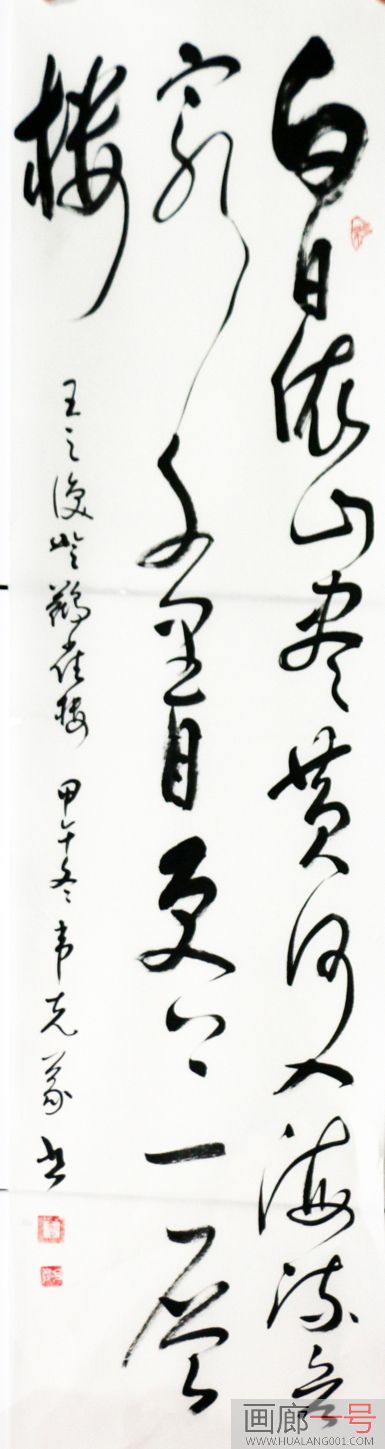 白日依山尽黄河入海流欲
穷千里目更上一层
楼
王之涣登鹳雀楼 甲午冬 韦克义书
画廊一号
WWW.HUALANG001.COM